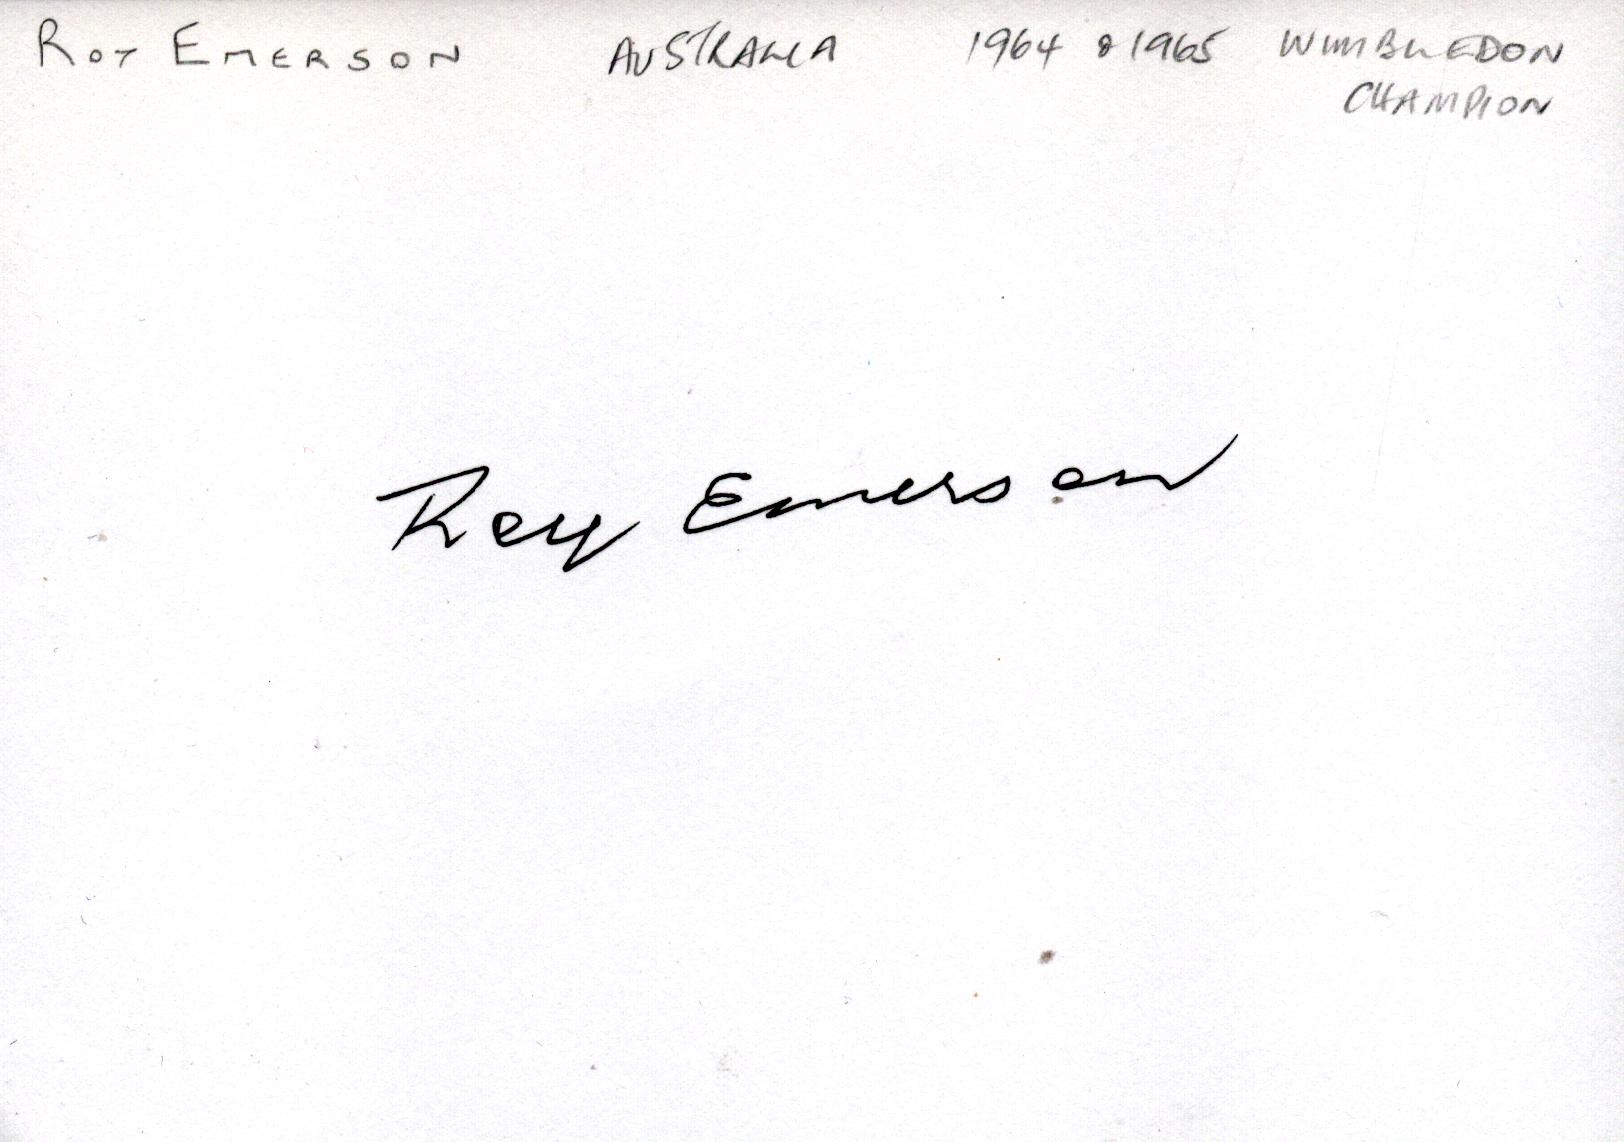 Roy Emerson AUSTRALIA 1964 & 1965 WIMBLEDON
CHAMPION
Roy Emerson